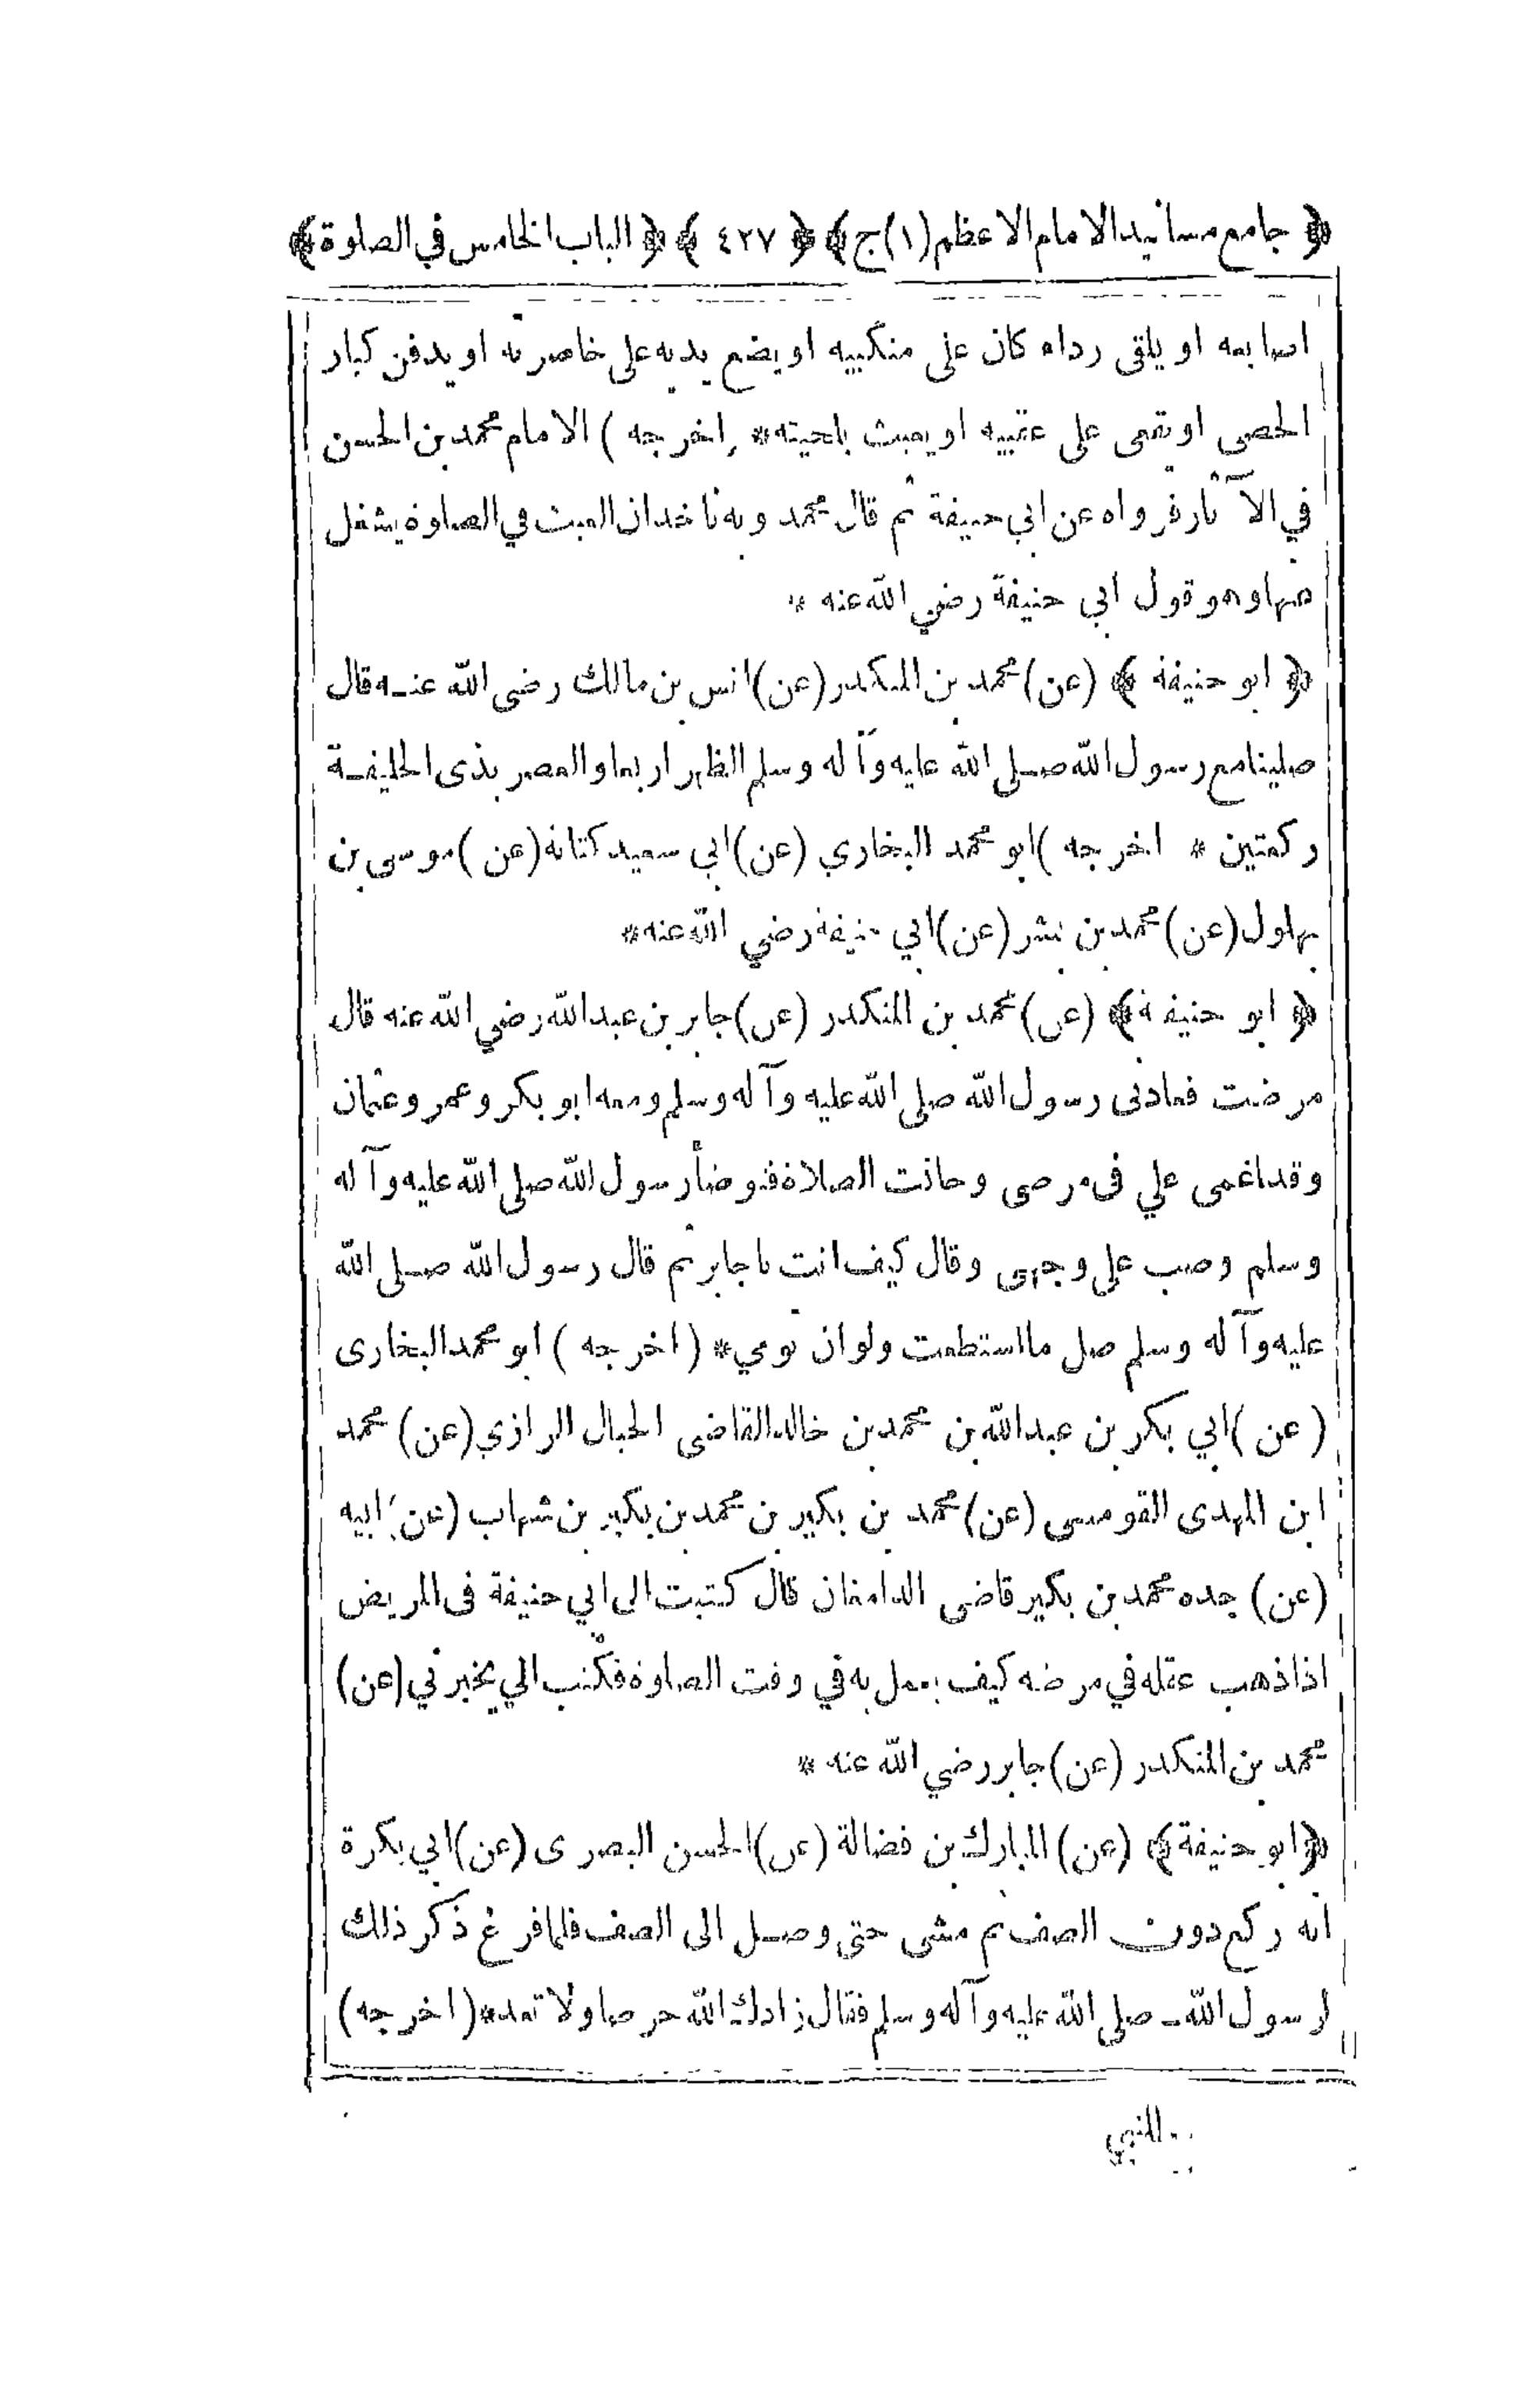 ﴿ جامع مسانيد الامام الاعظم (١) ج ﴾ ﴿ ٤٢٧ ﴾ ﴿ الباب الخامس في الصلوة ﴾
اصابعه او يلقى رداه كان على منكبيه او يضع يديه على خاصرته او يدفن كبار
الحصى او تقعى على عقبيه او يعبث بلحيته * اخرجه ) الامام محمد بن الحسن
في الآثار فرواه عن ابي حنيفة ثم قال محمد وبه ناخذ ان العبث في الصلوة يشغل
عنها وهو قول ابي حنيفة رضي الله عنه *
﴿ ابو حنيفة ﴾ (عن) محمد بن المنكدر (عن) انس بن مالك رضى الله عنه قال
صلينا مع رسول الله صلى الله عليه وآله وسلم الظهر اربعا والعصر بذى الحليفة
ركعتين * اخرجه ) ابو محمد البخاري (عن) ابي سعيد كتابه (عن) موسى بن
بهلول (عن) محمد بن بشر (عن) ابي حنيفة رضي الله عنه *
﴿ ابو حنيفة ﴾ (عن) محمد بن المنكدر (عن) جابر بن عبد الله رضي الله عنه قال
مرضت فعادنى رسول الله صلى الله عليه وآله وسلم ومعه ابو بكر وعمر وعثمان
وقد اغمى علي فى مرضى وحانت الصلاة فتوضأ رسول الله صلى الله عليه وآله
وسلم وصب على وجهى وقال كيف انت يا جابر ثم قال رسول الله صلى الله
عليه وآله وسلم صل ما استطعت ولو ان تومي * ( اخرجه ) ابو محمد البخارى
( عن ) ابي بكر بن عبد الله بن محمد بن خالد القاضى الحبال الرازي (عن) محمد
ابن المهدى القومسى (عن) محمد بن بكير بن محمد بن بكير بن شهاب (عن) ابيه
(عن) جده محمد بن بكير قاضى الدامغان قال كتبت الى ابي حنيفة فى المريض
اذا ذهب عقله في مرضه كيف يعمل به في وقت الصلوة فكتب الي يخبرني (عن)
محمد بن المنكدر (عن) جابر رضي الله عنه *
﴿ ابو حنيفة ﴾ (عن) المبارك بن فضالة (عن) الحسن البصرى (عن) ابي بكرة
انه ركع دون الصف ثم مشى حتى وصل الى الصف فلما فرغ ذكر ذلك
لرسول الله صلى الله عليه وآله وسلم فقال زادك الله حرصا ولا تعد * ( اخرجه )